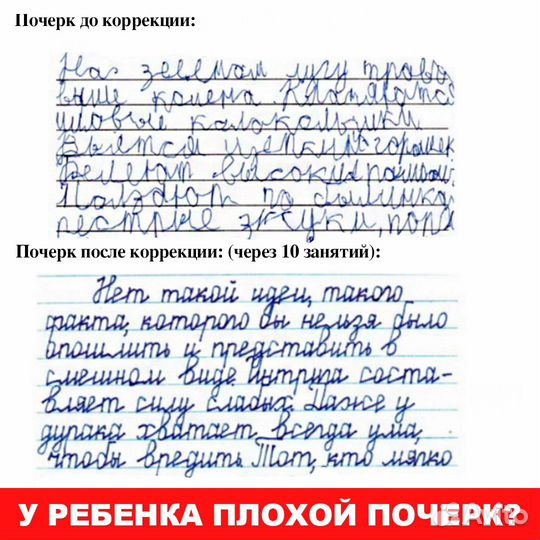 Почерк до коррекции:
На зеленом лугу трава
выше колена. Клонятся
лиловые колокольчики
Вьётся цепкий горошек
Белеют высокие ромашки
Ползают по былинка
пестрые жуки, пора
Почерк после коррекции: (через 10 занятий):
Нет такой идеи, такого
факта, которого бы нельзя было
опошлить и представить в
смешном виде. Интрига соста-
вляет силу слабых. Даже у
дурака хватает всегда ума,
чтобы вредить. Тот, кто мягко
У РЕБЕНКА ПЛОХОЙ ПОЧЕРК?
Avito